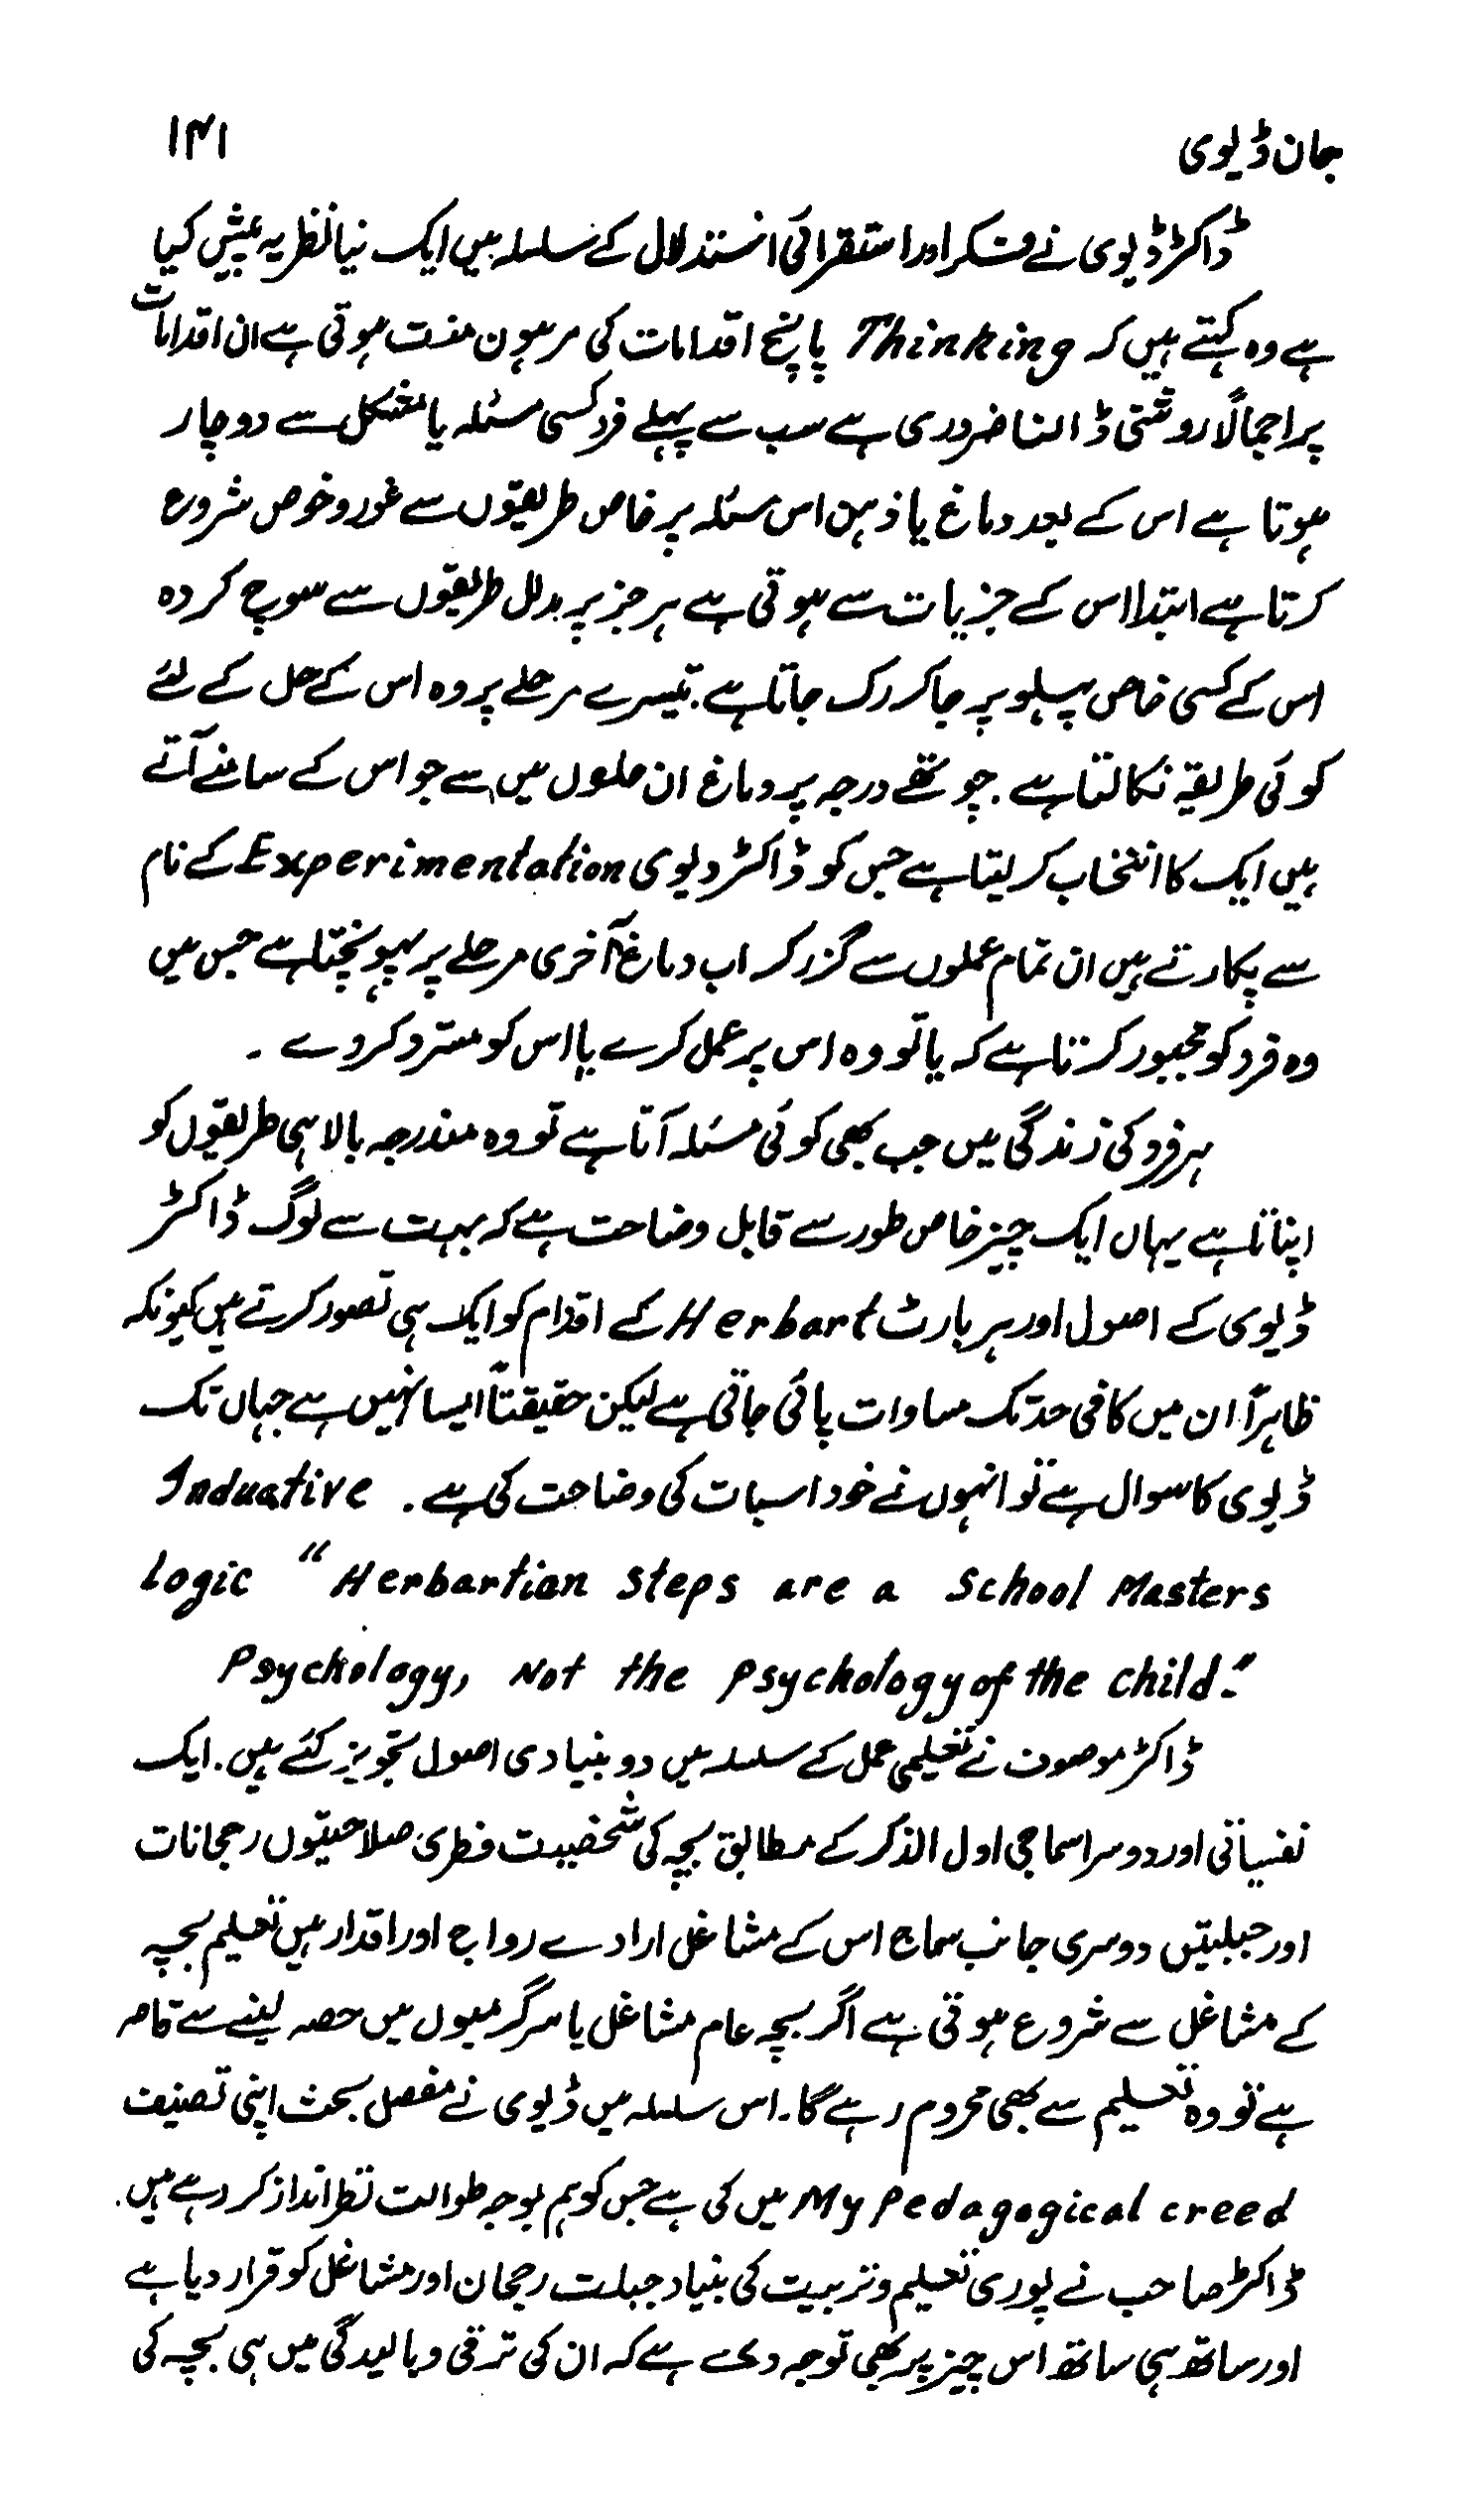 جان ڈیوی ۱۴۱
ڈاکٹر ڈیوی نے فکر اور استقرائی استدلال کے سلسلہ میں ایک نیا نظریہ پیش کیا
ہے وہ کہتے ہیں کہ Thinking پانچ اقدامات کی مرہون منت ہوتی ہے ان اقدامات
پر اجمالاً روشنی ڈالنا ضروری ہے سب سے پہلے فرد کسی مسئلہ یا مشکل سے دوچار
ہوتا ہے اس کے بعد دماغ یا ذہن اس مسئلہ پر خاص طریقوں سے غور و خوص شروع
کرتا ہے ابتدا اس کے جزیات سے ہوتی ہے ہر جز پر مدلل طریقوں سے سوچ کر وہ
اس کے کسی خاص پہلو پر جا کر رک جاتا ہے. تیسرے مرحلے پر وہ اس کے حل کے لئے
کوئی طریقہ نکالتا ہے. چوتھے درجہ پر دماغ ان حلوں میں سے جو اس کے سامنے آتے
ہیں ایک کا انتخاب کر لیتا ہے جس کو ڈاکٹر دیوی Experimentation کے نام
سے پکارتے ہیں ان تمام عملوں سے گزر کر اب دماغ آخری مرحلے پر پہونچتا ہے جس میں
وہ فرد کو مجبور کرتا ہے کہ یا تو وہ اس پر عمل کرے یا اس کو مسترد کردے ۔
ہر فرد کی زندگی میں جب بھی کوئی مسئلہ آتا ہے تو وہ مندرجہ بالا ہی طریقوں کو
اپناتا ہے یہاں ایک چیز خاص طور سے قابل وضاحت ہے کہ بہت سے لوگ ڈاکٹر
ڈیوی کے اصول اور ہربارٹ Herbart کے اقدام کو ایک ہی تصور کرتے ہیں کیونکہ
ظاہراً ان میں کافی حد تک مساوات پائی جاتی ہے لیکن حقیقتاً ایسا نہیں ہے جہاں تک
ڈیوی کا سوال ہے تو انہوں نے خود اسبات کی وضاحت کی ہے. Induative
Logic "Herbartian Steps are a School Masters
Psychology, Not the Psychology of the child."
ڈاکٹر موصوف نے تعلیمی عمل کے سلسلہ میں دو بنیادی اصول تجویز کئے ہیں. ایک
نفسیاتی اور دوسرا سماجی اول الذکر کے مطابق بچہ کی شخصیت فطری صلاحیتوں رجحانات
اور جبلیتں دوسری جانب سماج اس کے مشاغل ارادے رواج اور اقدار ہیں تعلیم بچہ
کے مشاغل سے شروع ہوتی ہے اگر بچہ عام مشاغل یا سرگرمیوں میں حصہ لینے سے قاصر
ہے تو وہ تعلیم سے بھی محروم رہے گا۔ اس سلسلہ میں ڈیوی نے مفصل بحث اپنی تصنیف
My Pedagogical creed میں کی ہے جس کو ہم بوجہ طوالت نظر انداز کر رہے ہیں.
ڈاکٹر صاحب نے پوری تعلیم و تربیت کی بنیاد جبلت رجحان اور مشاغل کو قرار دیا ہے
اور ساتھ ہی ساتھ اس چیز پر بھی توجہ دی ہے کہ ان کی ترقی و بالیدگی میں ہی بچہ کی